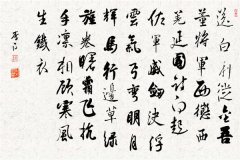 送白利從金吾
董將軍西徵西
羌延國討白起
佐軍威劍決浮
雲氣弓彎明月
輝馬行邊草綠
旌卷曙霜飛抗
手凜相顧寒風
生鐵衣